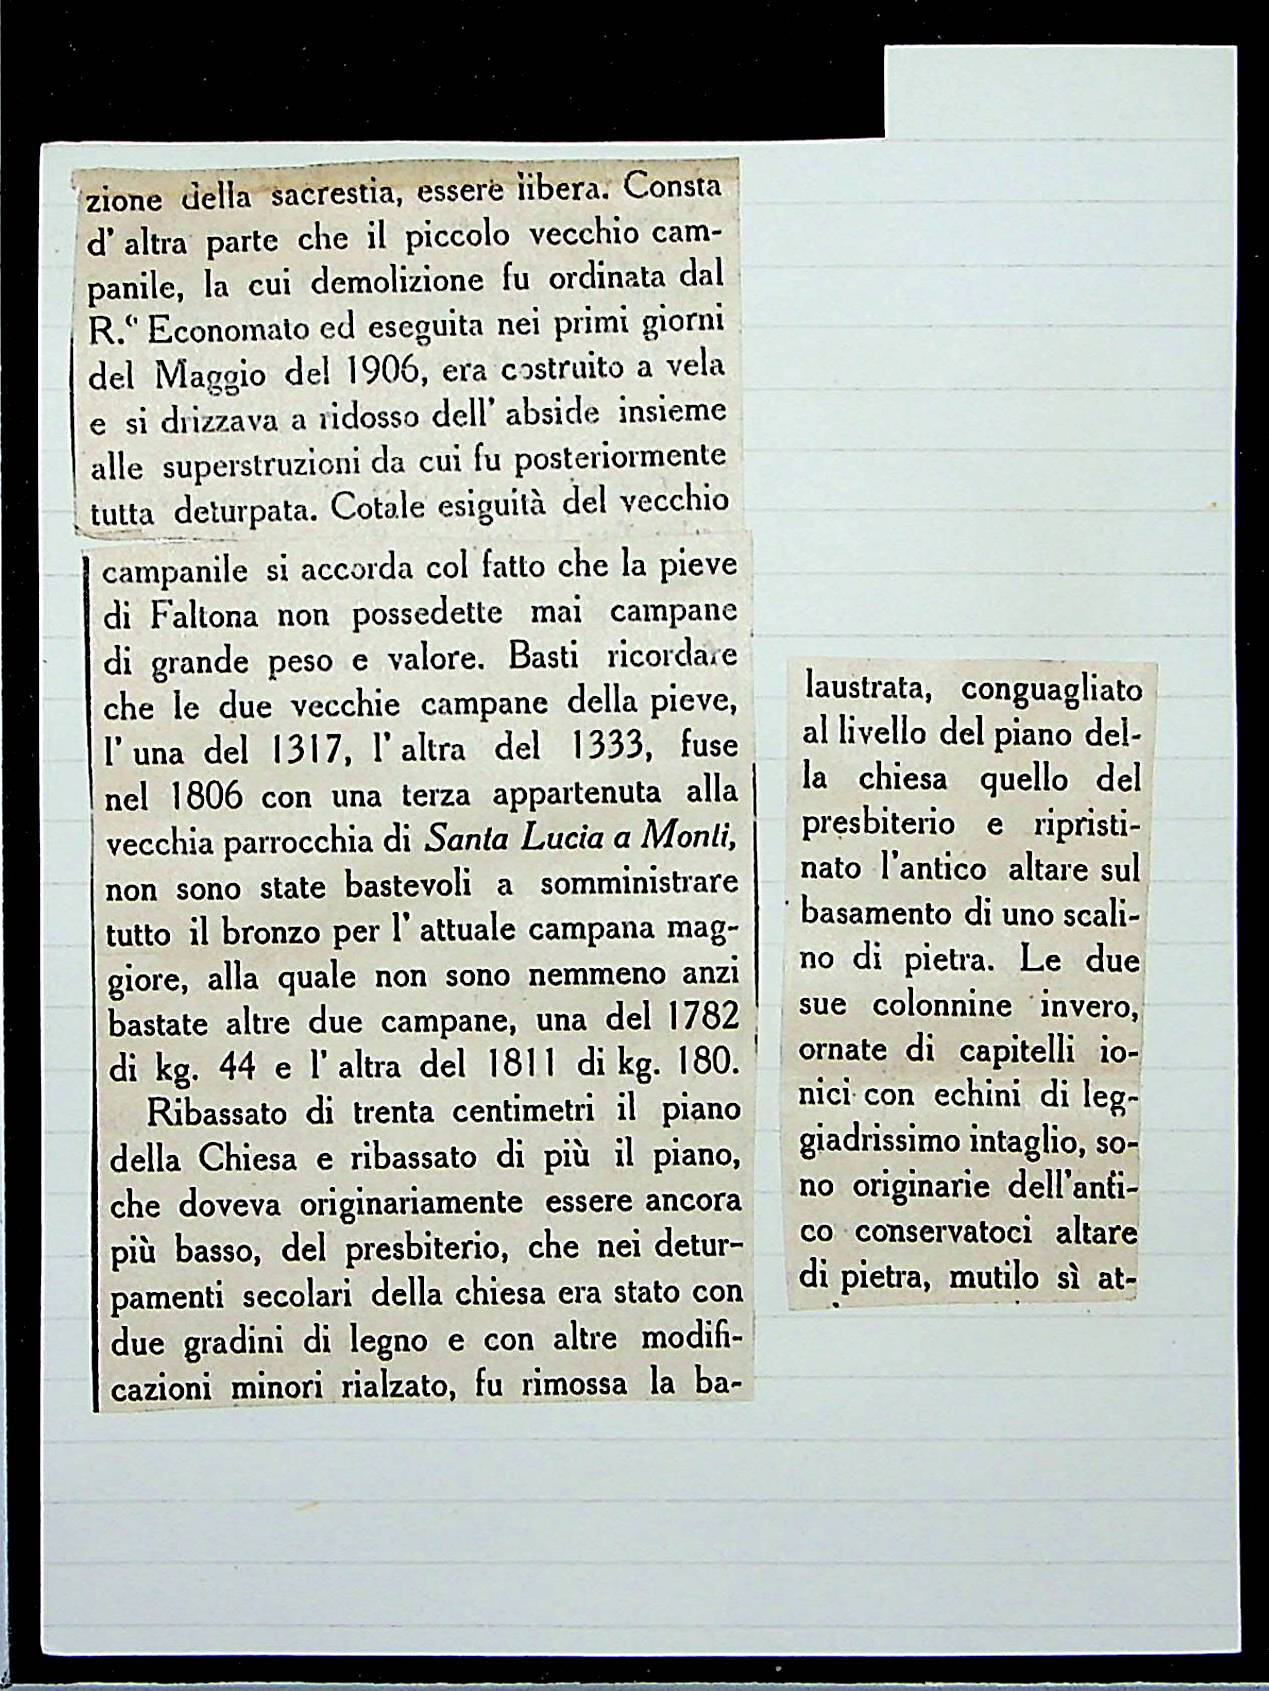 zione della sacrestia, essere libera. Consta
d' altra parte che il piccolo vecchio cam-
panile, la cui demolizione fu ordinata dal
R.º Economato ed eseguita nei primi giorni
del Maggio del 1906, era costruito a vela
e si drizzava a ridosso dell' abside insieme
alle superstruzioni da cui fu posteriormente
tutta deturpata. Cotale esiguità del vecchio
campanile si accorda col fatto che la pieve
di Faltona non possedette mai campane
di grande peso e valore. Basti ricordare
che le due vecchie campane della pieve,
l' una del 1317, l' altra del 1333, fuse
nel 1806 con una terza appartenuta alla
vecchia parrocchia di Santa Lucia a Monti,
non sono state bastevoli a somministrare
tutto il bronzo per l' attuale campana mag-
giore, alla quale non sono nemmeno anzi
bastate altre due campane, una del 1782
di kg. 44 e l' altra del 1811 di kg. 180.
Ribassato di trenta centimetri il piano
della Chiesa e ribassato di più il piano,
che doveva originariamente essere ancora
più basso, del presbiterio, che nei detur-
pamenti secolari della chiesa era stato con
due gradini di legno e con altre modifi-
cazioni minori rialzato, fu rimossa la ba-
laustrata, conguagliato
al livello del piano del-
la chiesa quello del
presbiterio e ripristi-
nato l'antico altare sul
basamento di uno scali-
no di pietra. Le due
sue colonnine invero,
ornate di capitelli io-
nici con echini di leg-
giadrissimo intaglio, so-
no originarie dell'anti-
co conservatoci altare
di pietra, mutilo sì at-